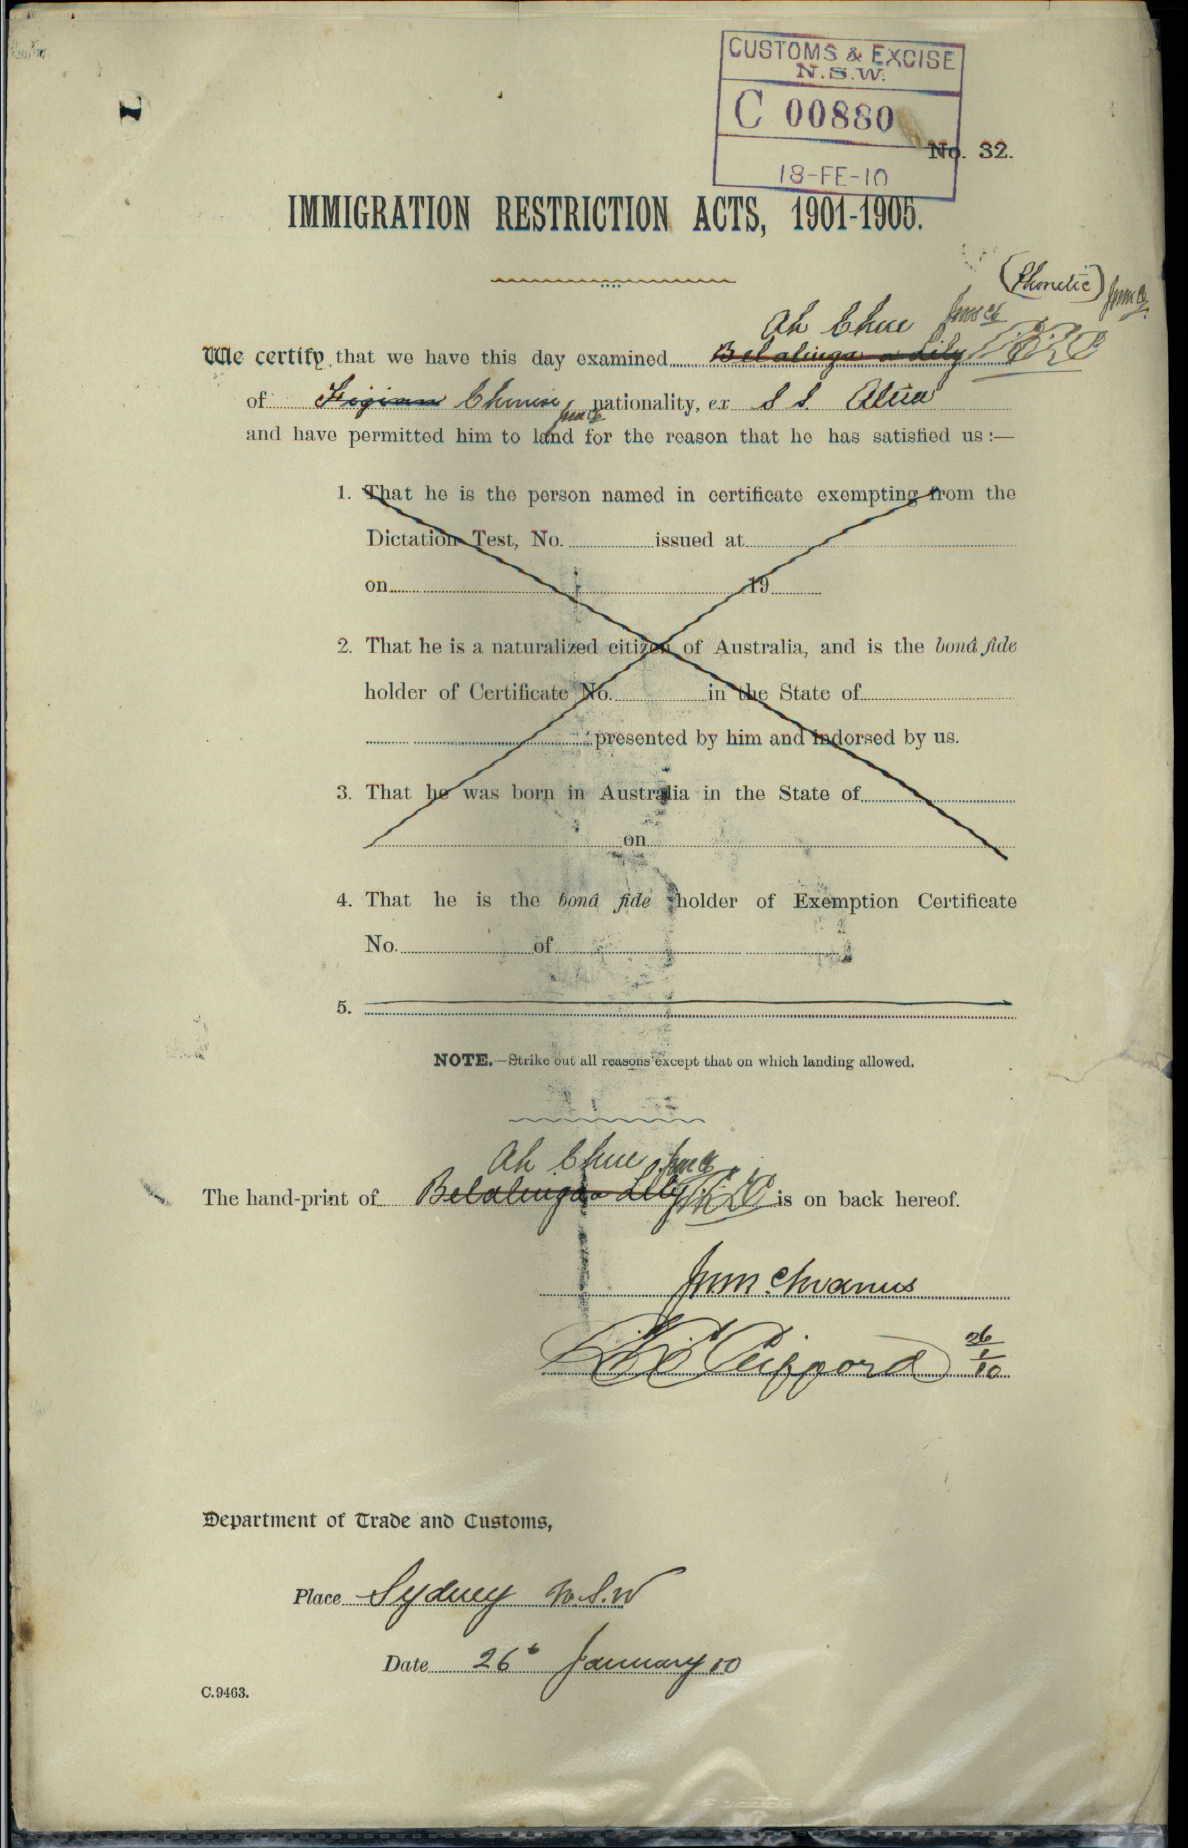 CUSTOMS & EXCISE
N.S.W.
C 00880
No. 32.
18-FE-10
IMMIGRATION RESTRICTION ACTS, 1901-1905.
(Phonetic)
Ah Chue
We certify that we have this day examined Belalinga a Lily
of Figian Chinese nationality, ex S S. Atua
and have permitted him to land for the reason that he has satisfied us :—
1. That he is the person named in certificate exempting from the
Dictation Test, No. issued at
on 19
2. That he is a naturalized citizen of Australia, and is the bonâ fide
holder of Certificate No. in the State of
presented by him and indorsed by us.
3. That he was born in Australia in the State of
on
4. That he is the bonâ fide holder of Exemption Certificate
No. of
5.
NOTE.—Strike out all reasons except that on which landing allowed.
Ah Chue
The hand-print of Belalinga a Lily is on back hereof.
Clifford 26/1/10
Department of Trade and Customs,
Place Sydney N.S.W
Date 26th January 10
C.9463.